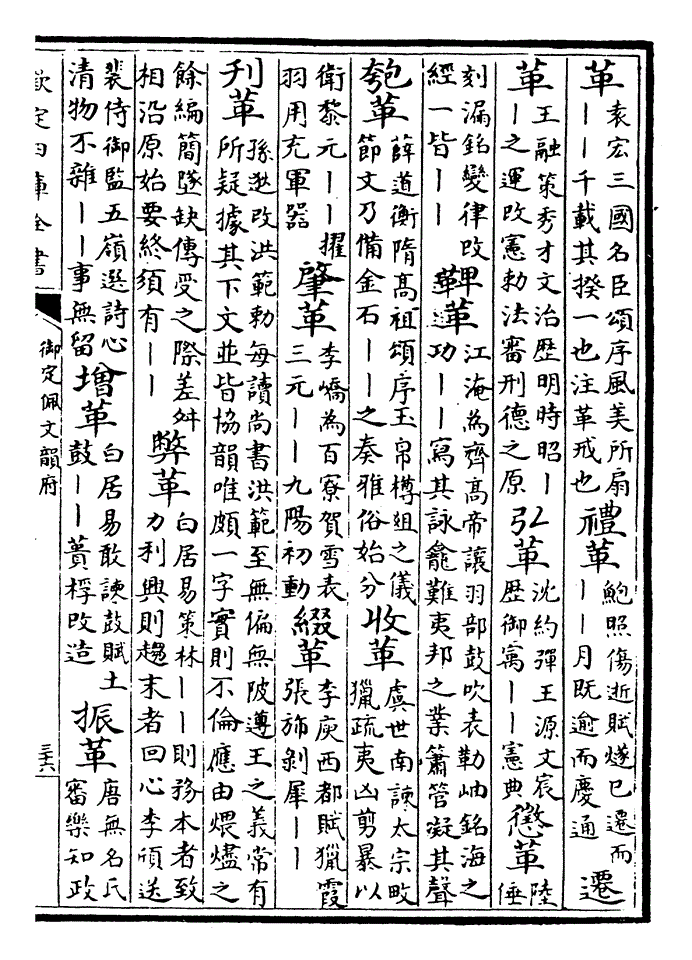 革 袁宏三國名臣頌序風美所扇丨丨千載其揆一也注革戒也 禮革 鮑照傷逝賦燧已遷而丨丨月既逾而慶通 遷
革 王融策秀才文治歴明時昭丨丨之運改憲勅法審刑德之原 弘革 沈約彈王源文宸歴御寓丨丨憲典 懲革 陸倕
刻漏銘變律改經一皆丨丨 鞞革 江淹為齊高帝讓羽部鼓吹表勒岫銘海之功丨丨寫其詠龕難夷邦之業簫管凝其聲
匏革 薛道衡隋高祖頌序玉帛樽俎之儀節文乃備金石丨丨之奏雅俗始分 收革 虞世南諫太宗畋獵疏夷凶剪暴以
衛黎元丨丨擢羽用充軍器 肇革 李嶠為百寮賀雪表三元丨丨九陽初動 綴革 李庾西都賦獵霞張斾剝犀丨丨
刋革 孫逖改洪範勅每讀尚書洪範至無偏無陂遵王之義常有所疑據其下文並皆協韻唯頗一字實則不倫應由煨燼之
餘編簡墜缺傳受之際差舛相沿原始要終須有丨丨 弊革 白居易策林丨丨則務本者致力利興則趨末者回心李頎送
裴侍御監五嶺選詩心清物不雜丨丨事無留 增革 白居易敢諫鼓賦土鼓丨丨蕢桴改造 振革 唐無名氏審樂知政
欽定四庫全書
御定佩文韻府
三六